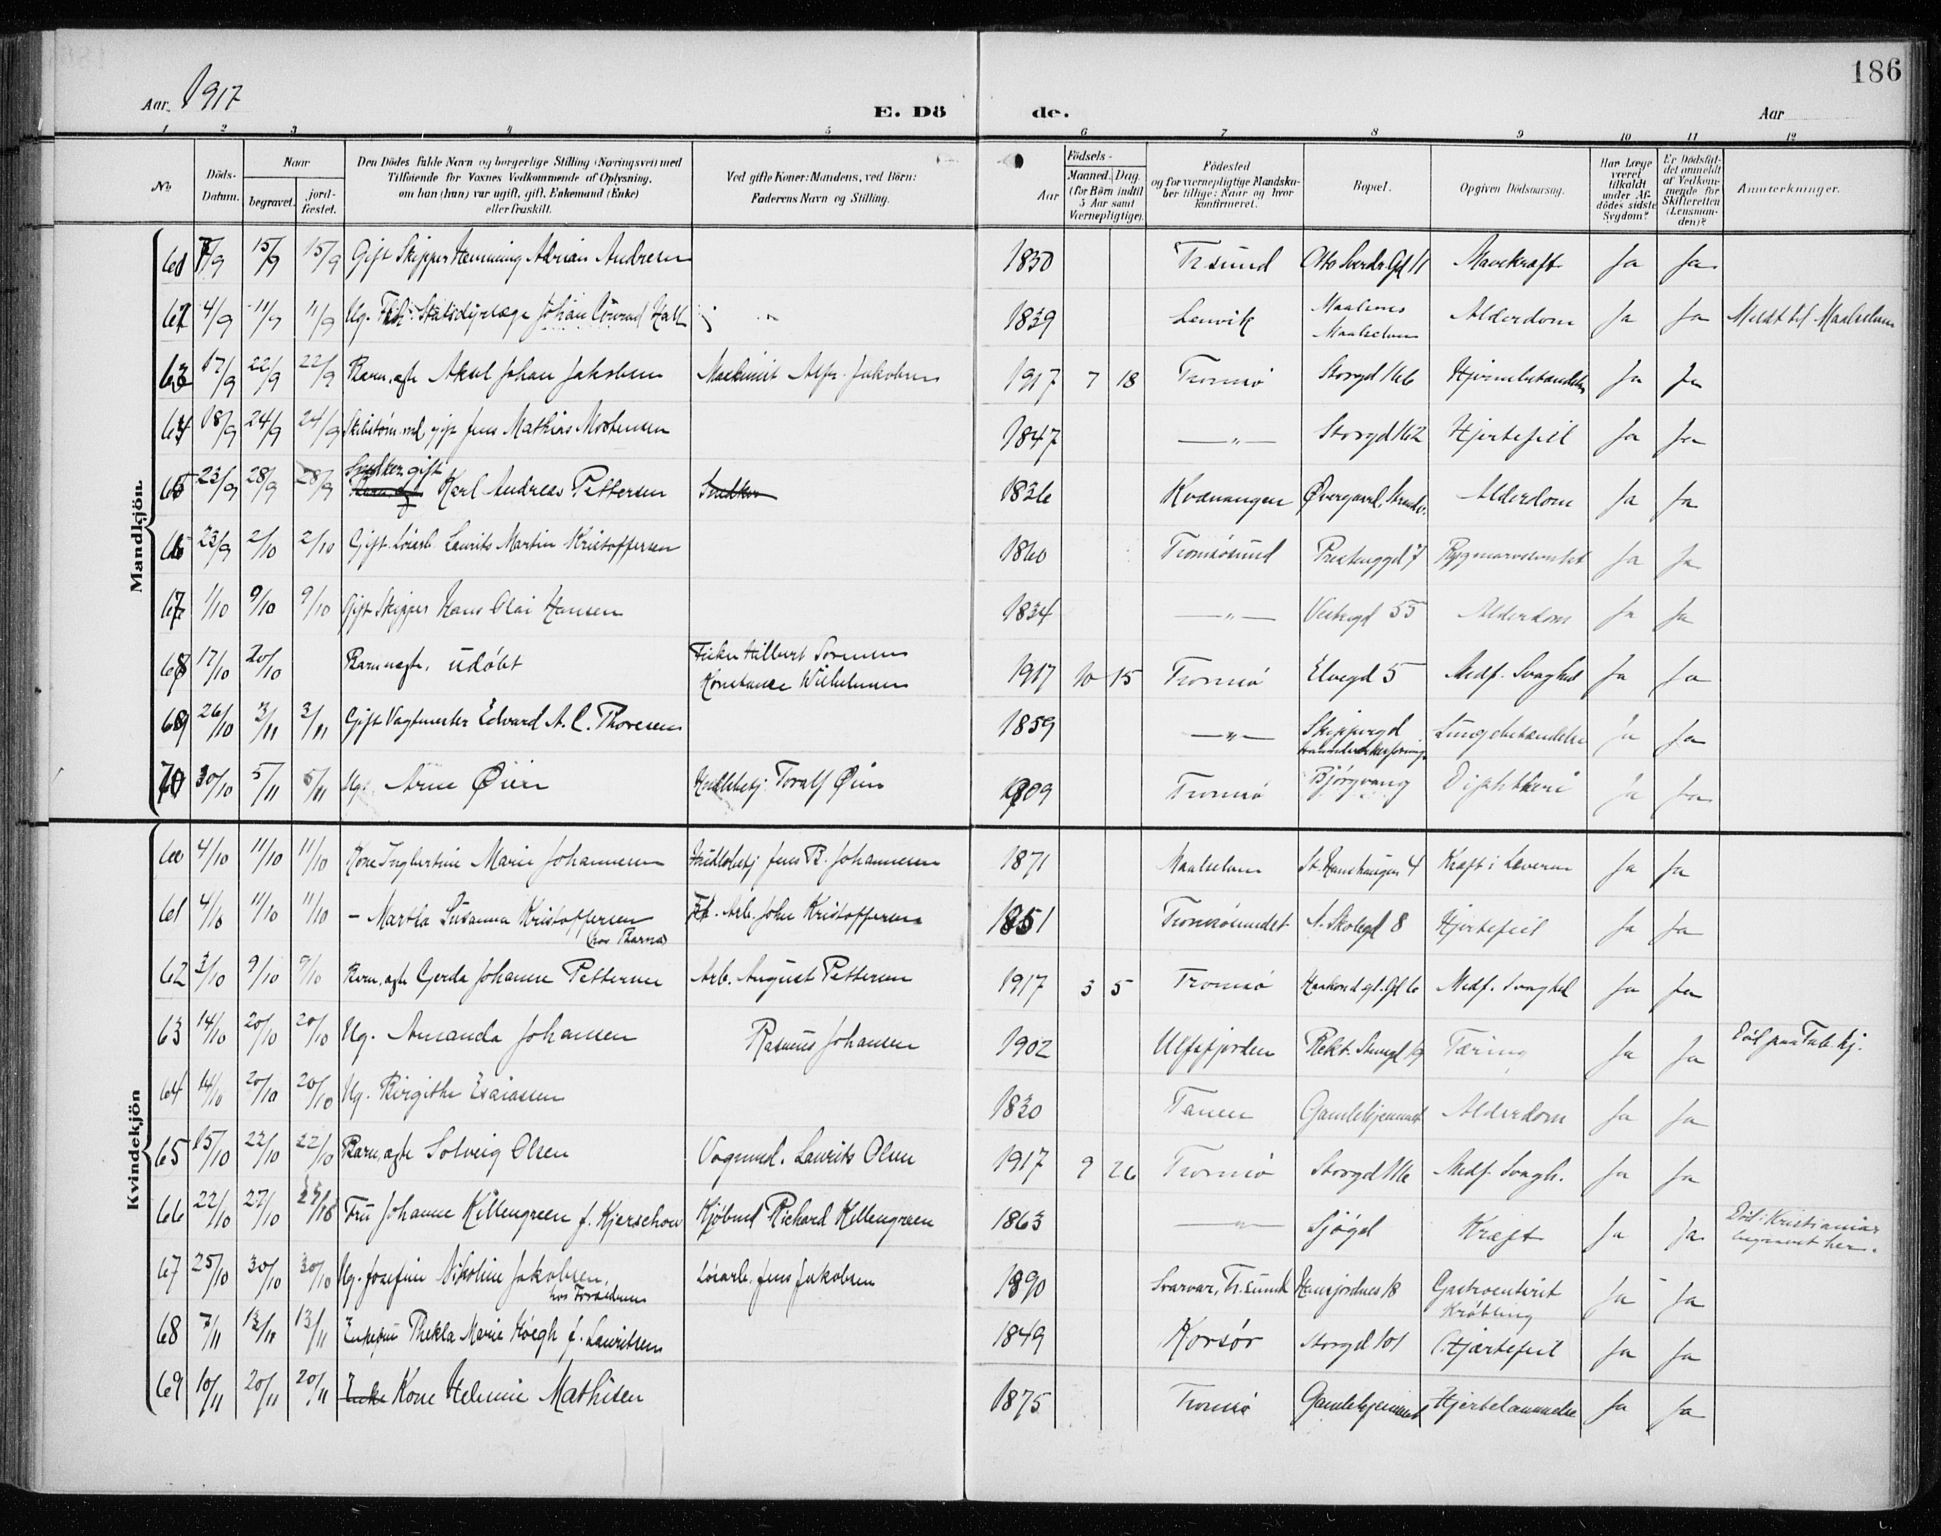 186
Aar 1917
E. Döde.
Aar
1 2 3 4 5 6 7 8 9 10 11 12
No.
Döds-Datum.
Naar
begravet.
jord-fæstet.
Den Dödes fulde Navn og borgerlige Stilling (Næringsvei) med
Tilföiende for Voxnes Vedkommende af Oplysning,
om han (hun) var ugift, gift, Enkemand (Enke)
eller fraskilt.
Ved gifte Koner: Mandens, ved Börn:
Faderens Navn og Stilling.
Födsels-
Aar
Maaned. Dag.
(for Börn indtil
5 Aar samt
Værnepligtige).
Födested
og for værnepligtige Mandska-
ber tillige: Naar og hvor
konfirmeret.
Bopæl.
Opgiven Dödsaarsag.
Har Læge
været
tilkaldt
under Af-
dödes sidste
Sygdom?
Er Dödsfal-
det anmeldt
af Vedkom-
mende for
Skifteretten
(Lensman-
den)?
Anmærkninger.
Mandkjön.
61 /9 15/9 15/9 Gift Skipper Hemming Adrian Andresen 1830 Tr.sund Otto Sverdr. Gd 11 Mavekræft Ja Ja
62 4/9 11/9 11/9 Ug. Statsdyrlæge Johan Conrad Holt 1839 Lenvik Maalsnes Maalselven Alderdom Ja Ja Meldt til Maalselven
63 17/9 22/9 22/9 Barn, ægte Aksel Johan Jakobsen Maskinist Alfr. Jakobsen 1917 7 18 Tromsø Storgd 116 Hjernebetændelse Ja Ja
64 18/9 24/9 24/9 Skibstøm.md, gift Jens Mathias Mortensen 1847 —„— Storgd 162 Hjertefeil Ja Ja
65 23/9 28/9 28/9 Snedker gift Karl Andreas Pettersen Snedker 1836 Kvænangen Øvergaard, Alderdom Ja Ja
66 23/9 2/10 2/10 Gift Løsarb. Laurits Martin Kristoffersen 1860 Tromsøsund Prestenggd 7 Ja Ja
67 1/10 9/10 9/10 Gift Skipper Hans Olai Hansen 1834 —„— Vestregd 55 Alderdom Ja Ja
68 17/10 20/10 Barn uægte. udøbt Fisker Hilbert Sorensen Konstanse Wilhelmsen 1917 10 15 Tromsø Elvegd 5 Medf. Svaghed Ja Ja
69 26/10 3/11 3/11 Gift Vagtmester Edvard A. C. Thoresen 1859 —„— Skippergd Lungebetændelse Ja Ja
70 30/10 5/11 5/11 Ug. Arne Øien Handelsbetj. Toralf Øien 1909 Tromsø Bjørgvang Diphtheri Ja Ja
Kvindekjön
60 4/10 11/10 11/10 Kone Ingbertine Marie Johannesen Handelsbetj Jens B. Johannesen 1871 Maalselven St. Hanshaugen 4 Kræft i Leveren Ja Ja
61 4/10 11/10 11/10 – Martha Susanna Kristoffersen Arb. John Kristoffersen 1851 Tromsøsundet N. Skolegd 8 Hjertefeil Ja Ja
62 3/10 9/10 9/10 Barn, ægte Gerda Johanne Pettersen Arb. August Pettersen 1917 3 5 Tromsø Haakon d. gl. Gd 6 Medf. Svaghed Ja Ja
63 14/10 20/10 20/10 Ug. Amanda Johansen Rasmus Johansen 1902 Ulfsfjorden Rekt. Steengd 19 Tæring Ja Ja Død paa Tub. hj.
64 14/10 20/10 20/10 Ug. Birgithe Esaiassen 1830 Tanen Gamlehjemmet Alderdom Ja Ja
65 15/10 22/10 22/10 Barn, ægte Solveig Olsen Vognmd. Laurits Olsen 1917 9 26 Tromsø Storgd 116 Medf. Svagh. Ja Ja
66 22/10 27/10 27/10 Fru Johanne Killengreen f. Kjerschow Kjøbmd Richard Killengreen 1863 —„— Sjøgd Kræft Ja Ja Død i Kristiania, begravet her.
67 25/10 30/10 30/10 Ug. Josefine Nikoline Jakobsen, Løsarb. Jens Jakobsen 1890 Svarvar, Tr.sund Hansjordnes 18 Gastroenterit Krøbling Ja Ja
68 7/11 13/11 13/11 Enkefru Thekla Marie Høegh f. Lauritsen 1849 Korsør Storgd 101 Hjertefeil Ja Ja
69 10/11 20/11 20/11 Enke Kone Helmine Mathisen 1875 Tromsø Gamlehjemmet Hjertelammelse Ja Ja